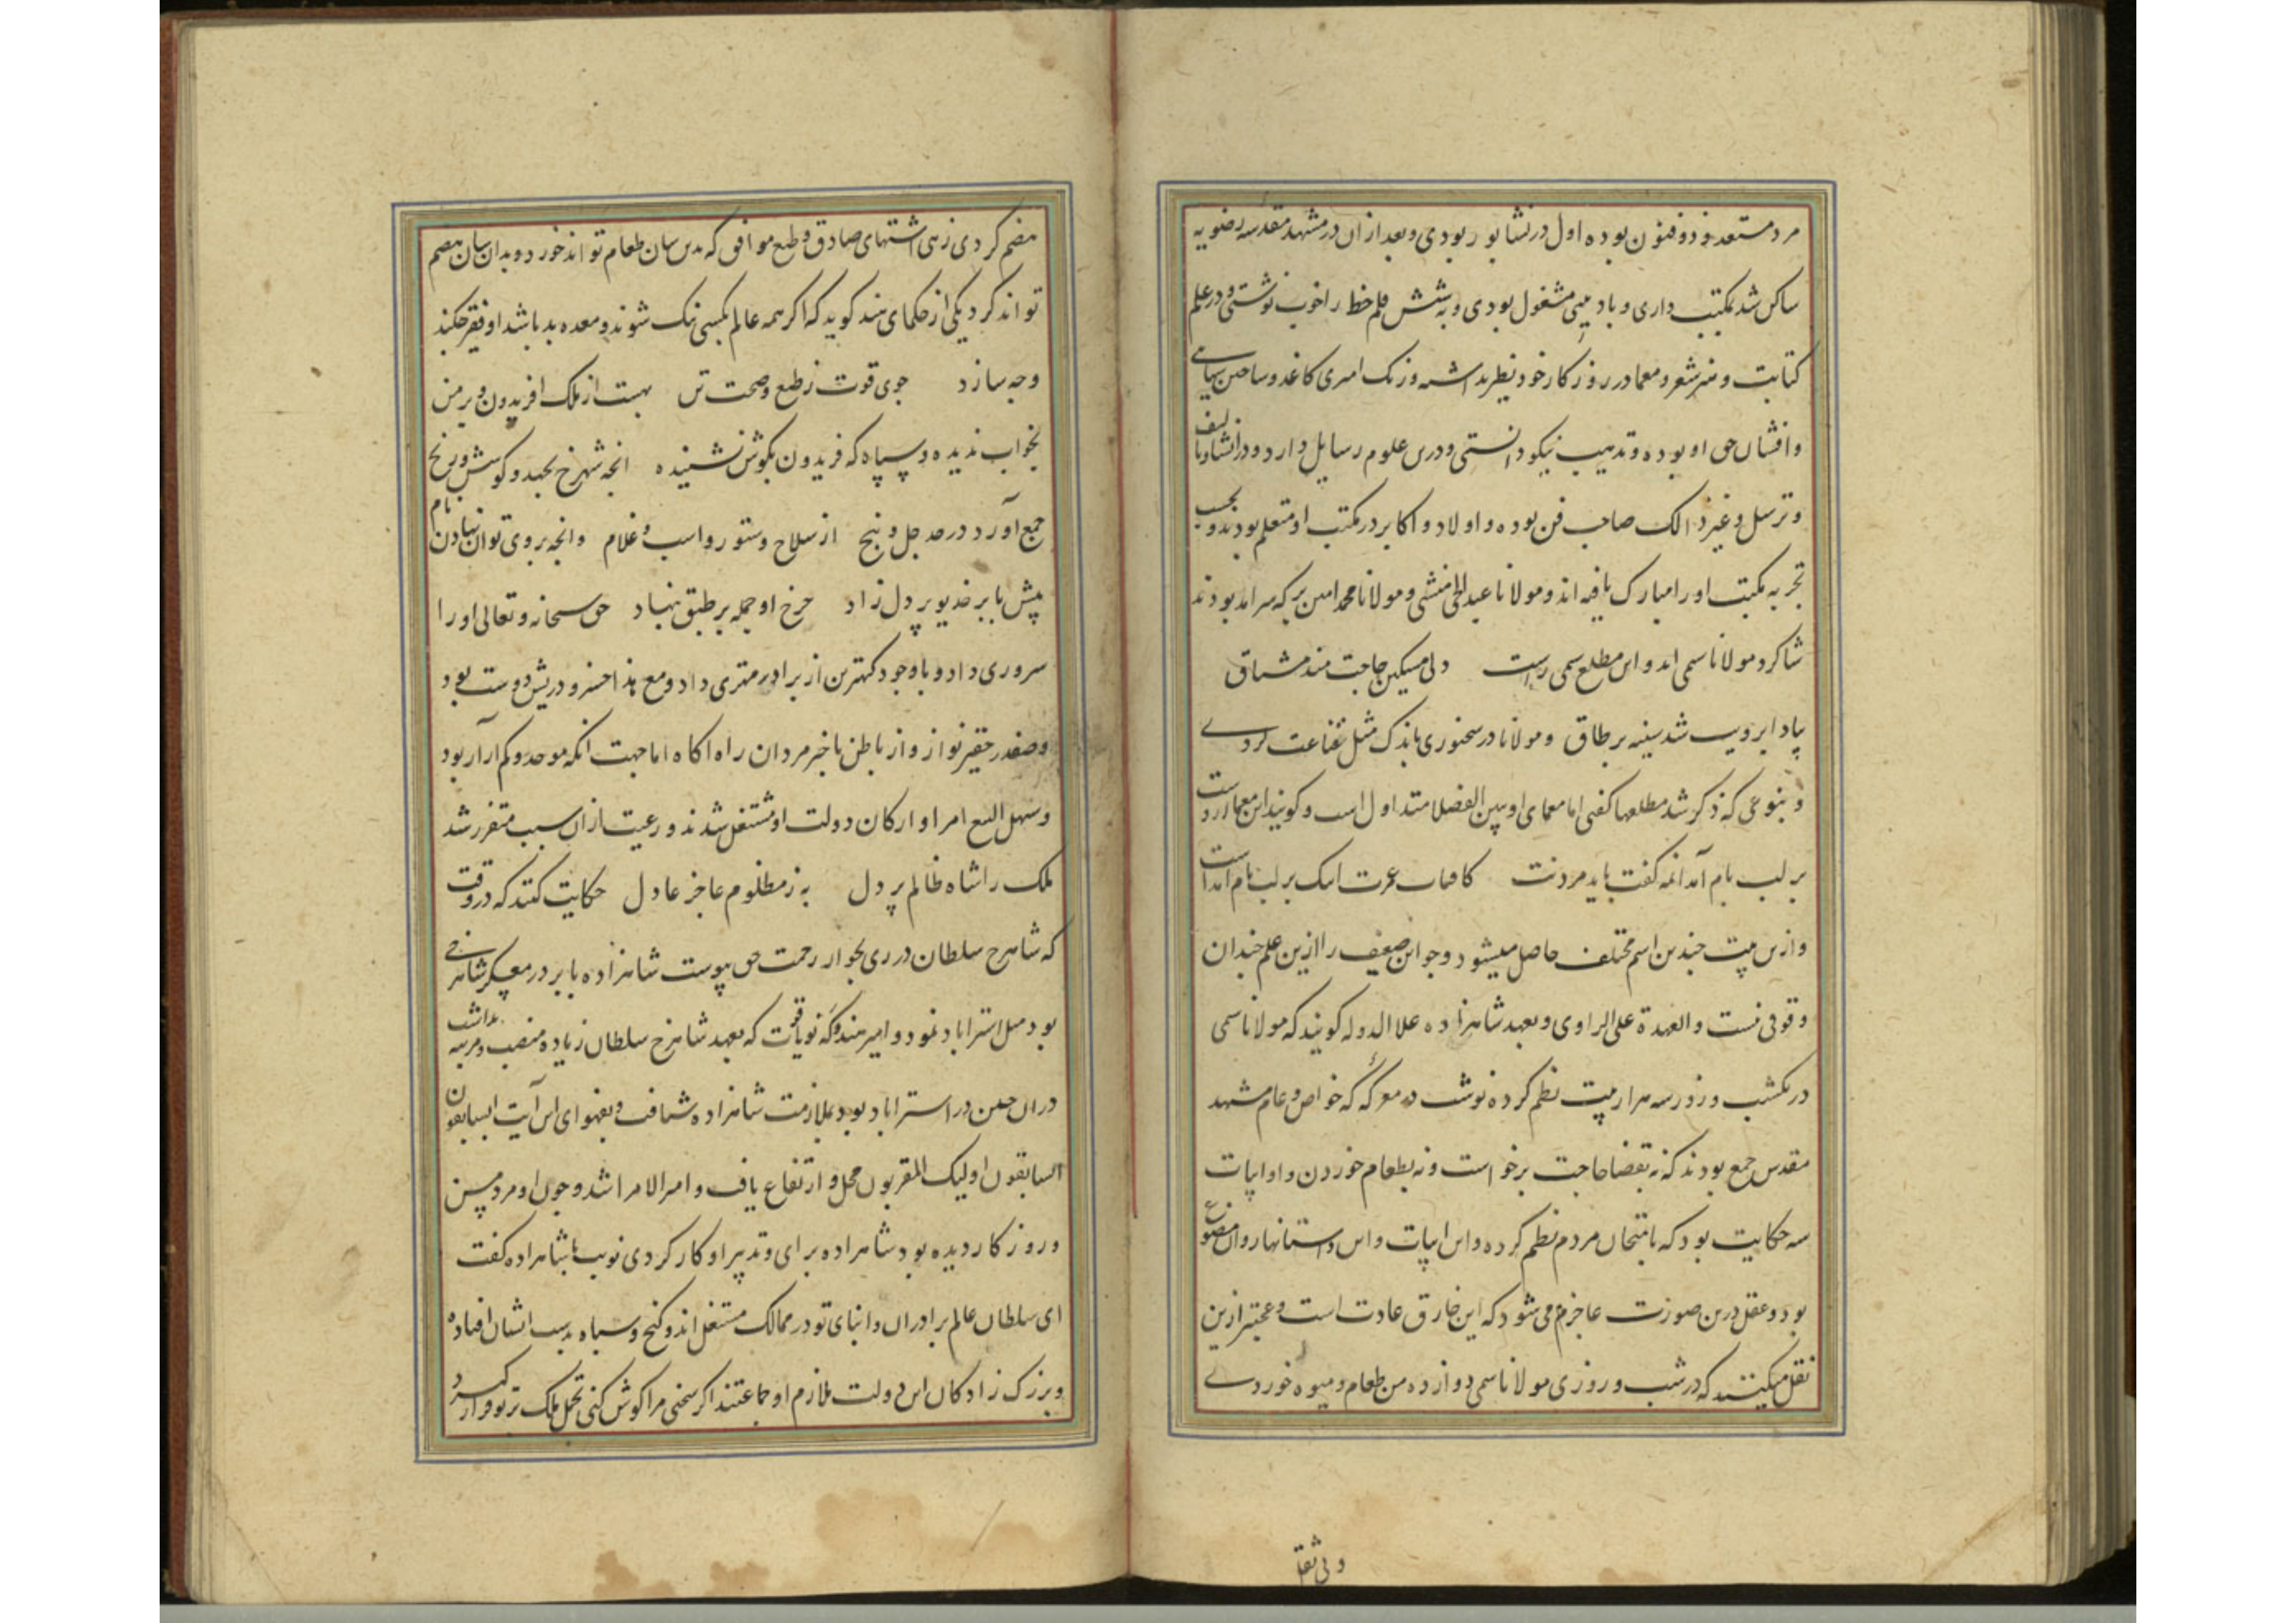 مرد مستعد و ذوفنون بوده اول در نشابور بودی و بعد از ان در مشهد مقدسه رضویه
ساکن شد بمکتب داری و بادیبی مشغول بودی و به شش قلم خط را خوب نوشتی و در علم
کتابت و شعر و معما در روزکار خود نظیر نداشته و رنک امیزی کاغذ و ساختن سیاهی
و افشان حق او بوده و تذهیب نیکو دانستی و درین علوم رسایل دارد و در انشا و تالیف
و ترسل و غیر ذالک صاحب فن بوده و اولاد و اکابر در مکتب او متعلم بودند و بحسب
تجربه مکتب او را مبارک یافته اند و مولانا عبدالحی منشی و مولانا محمد امین که سرامد بودند
شاکرد مولانا سیمی اند و این مطلع سیمی راست دل مسکین حاجت مند مشتاق
بیاد ابرویت شد سینه بر طاق و مولانا در سخنوری باندک مثل قناعت کردے
و بنوعی که ذکر شد مطلعها کفتی اما معمای او بین الفضلا متداول است و کویند این معما اوراست
بر لب بام آمد انمه کفت باید مردنت کافتاب عمرت اینک بر لب بام امداست
و ازین بیت چندین اسم مختلف حاصل میشود و چو این ضعیف را ازین علم چندان
وقوفی نیست و العهدة علی الراوی و بعهد شاهزاده علا الدوله کویند که مولانا سیمی
در یکشب و روز سه هزار بیت نظم کرده نوشت در معرکه که خواص و عام مشهد
مقدس جمع بودند که نه بقضا حاجت برخواست و نه بطعام خوردن و او ابیات
سه حکایت بود که بامتحان مردم نظم کرده و این ابیات و این داستانها روان و مصنوع
بود و عقل درین صورت عاجز می شود که این خارق عادت است و عجبتر ازین
نقل میکنند که در شب و روزی مولانا سیمی دوازده من طعام و میوه خوردے
و بی ثقل
هضم کردی زهی اشتهای صادق و طبع موافق که بدین سان طعام تواند خورد و بدان سان هضم
تواند کرد یکی از حکمای هند کوید که اکر همه عالم بکسی نیک شوند و معده بد باشد او فقیر چکند
وجه سازد جوی قوت ز طبع و صحت تن بهست از ملک افریدون و بر من
بخواب ندیده و سپاه که فریدون بکوش نشنیده انچه شهرخ بجهد و کوشش و رنج
جمع آورد در چهل و پنج از سلاح و ستور و اسب و غلام و انچه بر وی توان نهادن نام
پیش بابر خدیو پر دل زاد چرخ او جمله بر طبق بنهاد حق سبحانه و تعالی او را
سروری داد و باوجود کهترین از برادر مهتری داد و مع هذا خسرو درویش دوست بود
و صفدر حقیرنواز و از باطن باخبر مردان راه اکاه اما جهت انکه موحد و کم آزار بود
و سهل البیع امرا و ارکان دولت او مشتغل شدند و رعیت از ان سبب متفرر شد
ملک را شاه ظالم پر دل به ز مظلوم عاجز عادل حکایت کنند که در وقت
که شاهرخ سلطان در ری بجوار رحمت حق پیوست شاهزاده بابر در معسکر شاهرخی
بود میل استراباد نمود و امیر هندوکه نویان که بعهد شاهرخ سلطان زیاده منصب و مرتبه نداشت
دران حین در استراباد بود بملازمت شاهزاده شتافت و بفحوای این آیت السابقون
السابقون اولیک المقربون محل و ارتفاع یافت و امیر الامرا شد و چون او مرد مسن
و روز کار دیده بود شاهزاده برای و تدبیر او کار کردی نوبت با شاهزاده کفت
ای سلطان عالم برادران و ابنای تو در ممالک مستغل اند و کنج و سپاه بدست ایشان افتاده
و بزرک زادکان این دولت ملازم او جماعتند اکر سخنی مرا کوش کنی تحمل ملک بر تو قرار کیرد